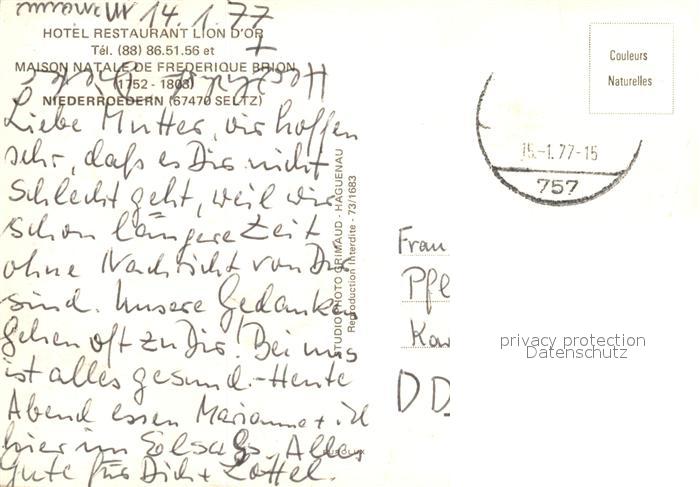 14.1.77
HOTEL RESTAURANT LION D'OR
Tél. (88) 86.51.56 et
MAISON NATALE DE FREDERIQUE BRION
(1752 - 1803)
NIEDERROEDERN (67470 SELTZ)
Liebe Mutter, wir hoffen
sehr, daß es Dir nicht
schlecht geht, weil wir
schon längere Zeit
ohne Nachricht von Dir
sind. Unsere Gedanken
gehen oft zu Dir! Bei uns
ist alles gesund. - Heute
Abend essen Marianne + ich
hier im Elsaß. Alles
Gute für Dich + Lottel.
Herzlichst
Marianne
+
STUDIO PHOTO GRIMAUD - HAGUENAU
Reproduction interdite - 73/1683
EUROLUX
Couleurs
Naturelles
15.-1.77-15
757
Frau
Pfl
DD
privacy protection
Datenschutz